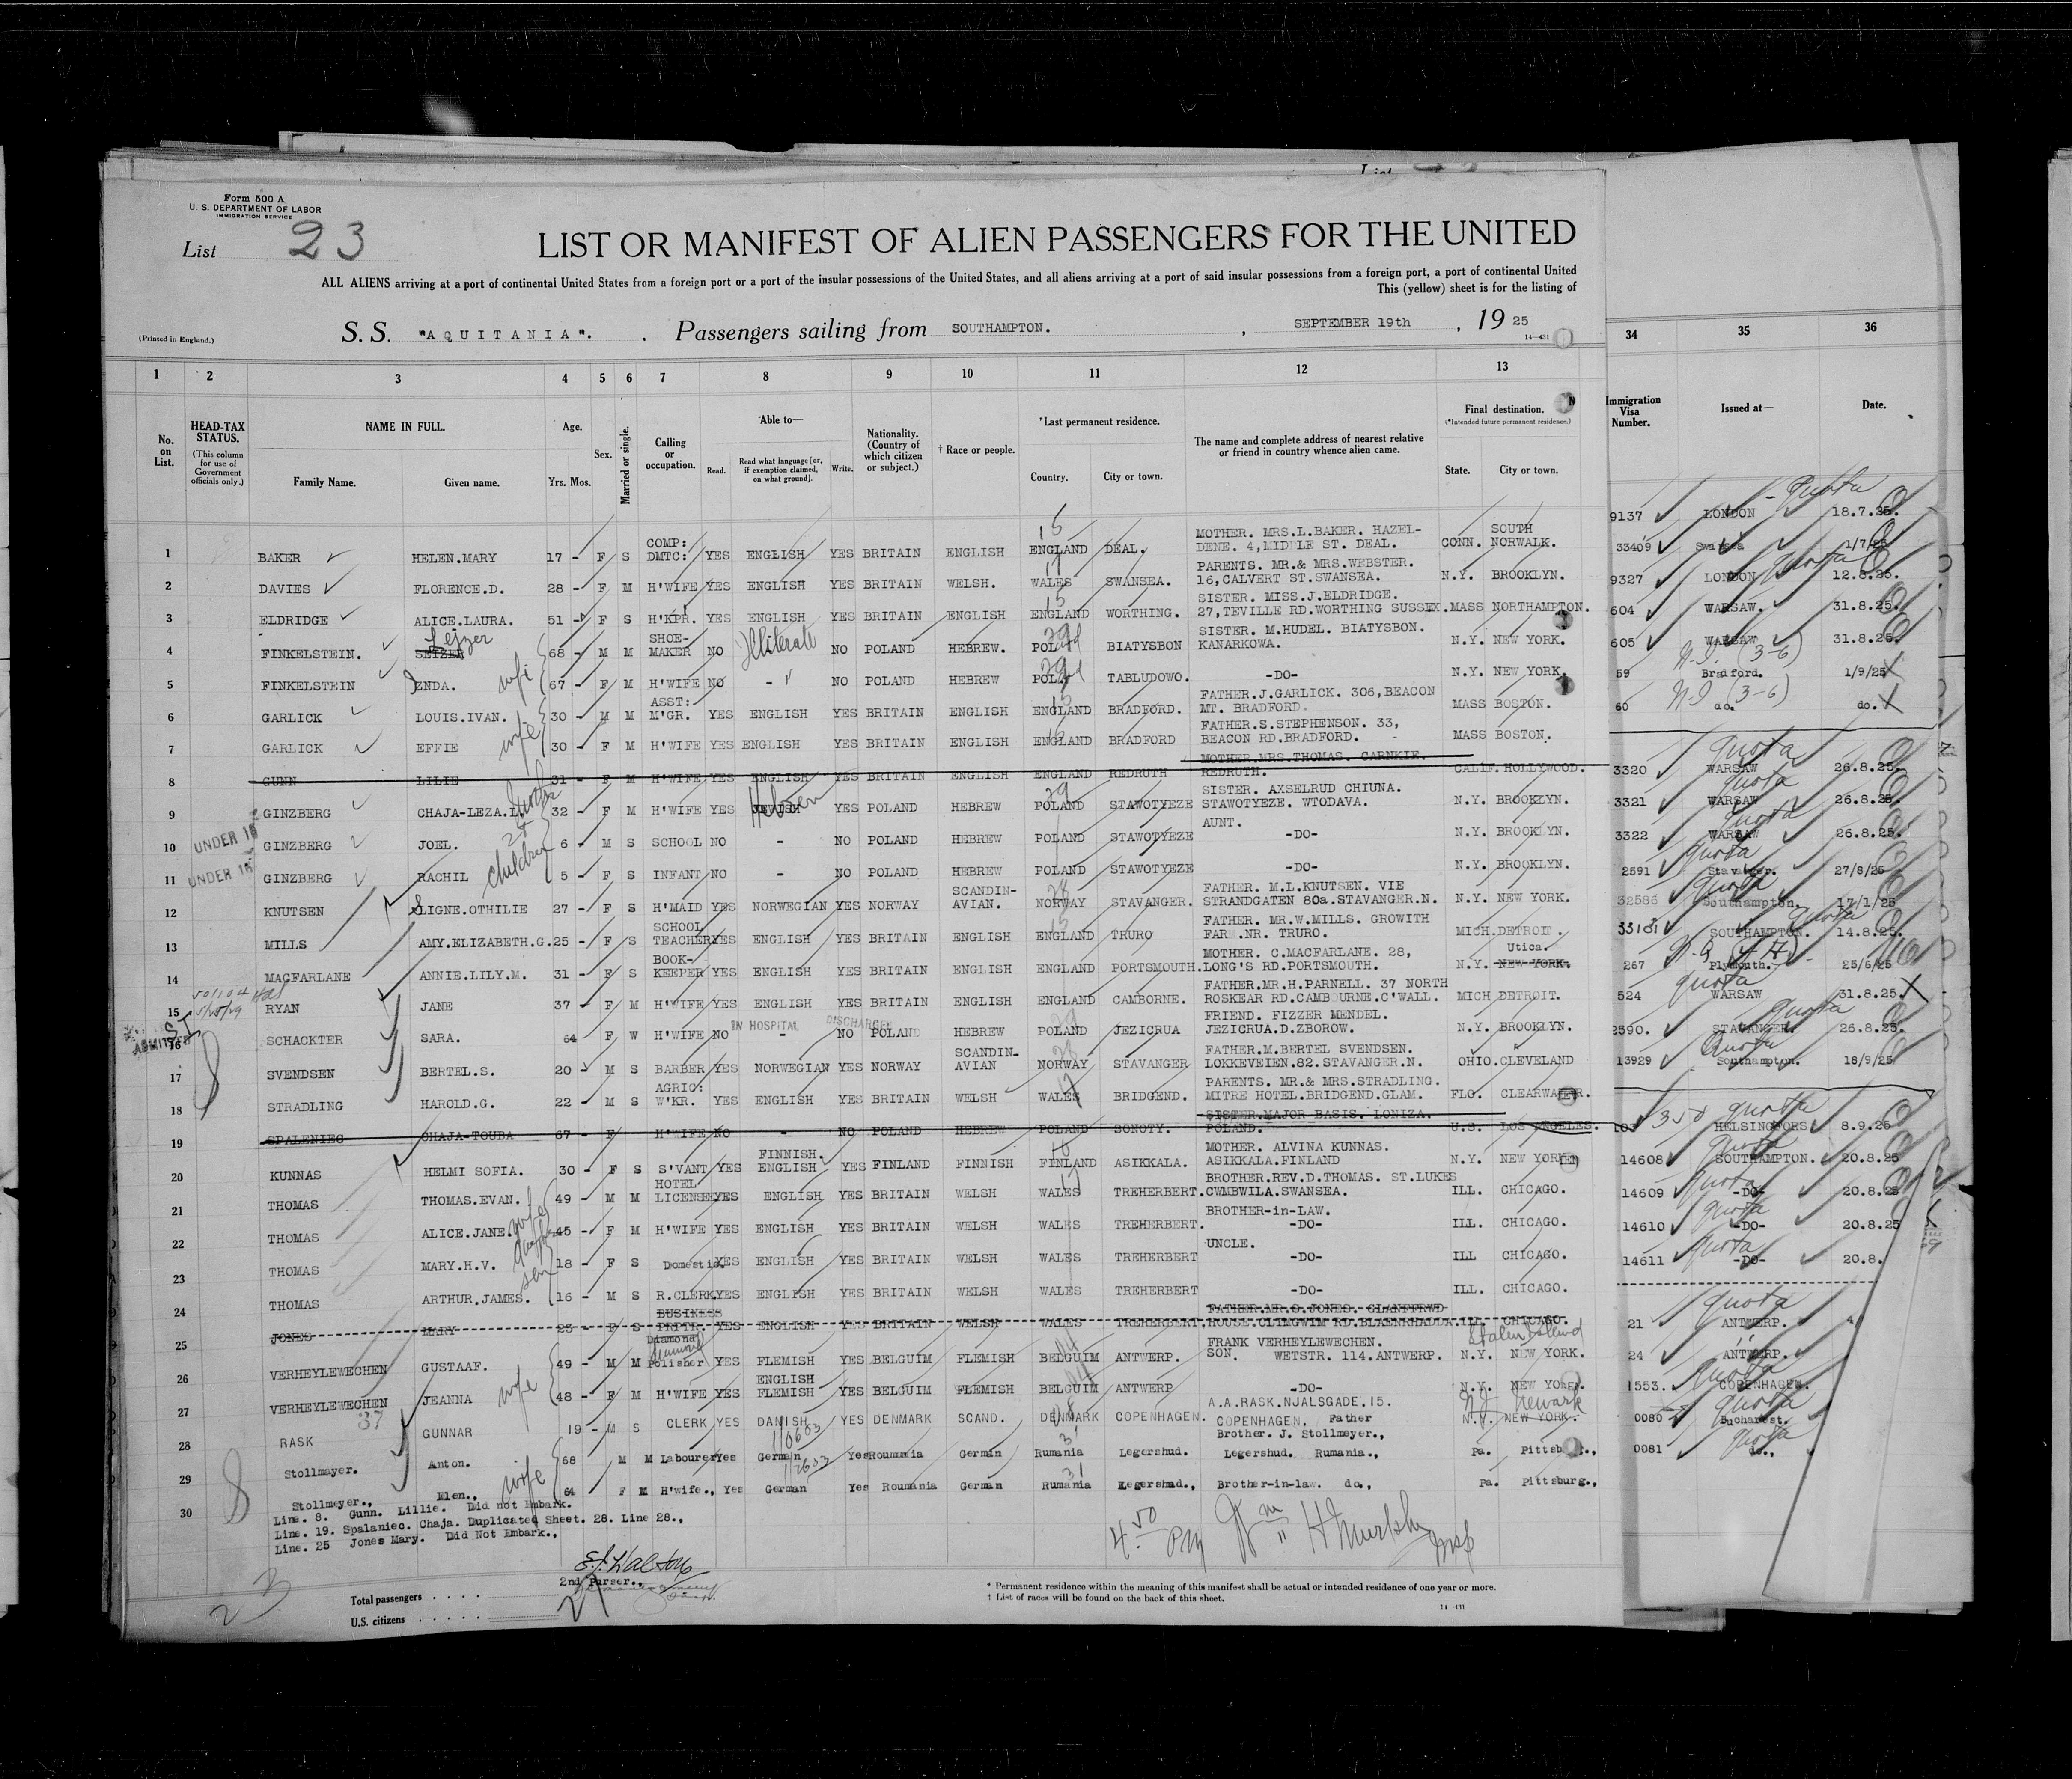 Form 500 A
U. S. DEPARTMENT OF LABOR
IMMIGRATION SERVICE
List 23
LIST OR MANIFEST OF ALIEN PASSENGERS FOR THE UNITED
ALL ALIENS arriving at a port of continental United States from a foreign port or a port of the insular possessions of the United States, and all aliens arriving at a port of said insular possessions from a foreign port, a port of continental United
This (yellow) sheet is for the listing of
(Printed in England.)
S. S. "AQUITANIA". Passengers sailing from SOUTHAMPTON. , SEPTEMBER 19th , 19 25
1 2 3 4 5 6 7 8 9 10 11 12 13 34 35 36
No. on List.
HEAD-TAX STATUS.
(This column for use of Government officials only.)
NAME IN FULL.
Family Name. Given name.
Age.
Yrs. Mos.
Sex.
Married or single.
Calling or occupation.
Able to—
Read. Read what language [or, if exemption claimed, on what ground]. Write.
Nationality. (Country of which citizen or subject.)
† Race or people.
*Last permanent residence.
Country. City or town.
The name and complete address of nearest relative or friend in country whence alien came.
Final destination.
(*Intended future permanent residence.)
State. City or town.
Immigration Visa Number.
Issued at—
Date.
1 BAKER HELEN.MARY 17 - F S COMP: DMTC: YES ENGLISH YES BRITAIN ENGLISH ENGLAND DEAL. MOTHER. MRS.L.BAKER. HAZEL-DENE. 4,MIDDLE ST. DEAL. CONN. SOUTH NORWALK.
2 DAVIES FLORENCE.D. 28 - F M H'WIFE YES ENGLISH YES BRITAIN WELSH. WALES SWANSEA. PARENTS. MR.& MRS.WEBSTER. 16,CALVERT ST.SWANSEA. N.Y. BROOKLYN.
3 ELDRIDGE ALICE.LAURA. 51 - F S H'KPR. YES ENGLISH YES BRITAIN ENGLISH ENGLAND WORTHING. SISTER. MISS.J.ELDRIDGE. 27,TEVILLE RD.WORTHING SUSSEX. MASS NORTHAMPTON.
4 FINKELSTEIN. Lejzer 68 - M M SHOE-MAKER NO Illiterate NO POLAND HEBREW. POLAND BIATYSBON SISTER. M.HUDEL. BIATYSBON. KANARKOWA. N.Y. NEW YORK.
5 FINKELSTEIN ENDA. wife 67 - F M H'WIFE NO - NO POLAND HEBREW POLAND TABLUDOWO. -DO- N.Y. NEW YORK.
6 GARLICK LOUIS.IVAN. 30 - M M ASST: M'GR. YES ENGLISH YES BRITAIN ENGLISH ENGLAND BRADFORD. FATHER.J.GARLICK. 306,BEACON MT. BRADFORD. MASS BOSTON.
7 GARLICK EFFIE wife 30 - F M H'WIFE YES ENGLISH YES BRITAIN ENGLISH ENGLAND BRADFORD FATHER.S.STEPHENSON. 33, BEACON RD.BRADFORD. MASS BOSTON.
8 GUNN LILIE 31 - F M H'WIFE YES ENGLISH YES BRITAIN ENGLISH ENGLAND REDRUTH MOTHER.MRS.THOMAS. CARNKIE. REDRUTH. CALIF.HOLLYWOOD.
9 GINZBERG CHAJA-LEZA.L. 32 - F M H'WIFE YES Hebrew YES POLAND HEBREW POLAND STAWOTYEZE SISTER. AXSELRUD CHIUNA. STAWOTYEZE. WTODAVA. N.Y. BROOKLYN.
10 UNDER 16 GINZBERG JOEL. 6 - M S SCHOOL NO - NO POLAND HEBREW POLAND STAWOTYEZE AUNT. -DO- N.Y. BROOKLYN.
11 UNDER 16 GINZBERG RACHIL children 5 - F S INFANT NO - NO POLAND HEBREW POLAND STAWOTYEZE -DO- N.Y. BROOKLYN.
12 KNUTSEN SIGNE.OTHILIE 27 - F S H'MAID YES NORWEGIAN YES NORWAY SCANDIN-AVIAN. NORWAY STAVANGER. FATHER. M.L.KNUTSEN. VIE STRANDGATEN 80a.STAVANGER.N. N.Y. NEW YORK.
13 MILLS AMY.ELIZABETH.G. 25 - F S SCHOOL TEACHER YES ENGLISH YES BRITAIN ENGLISH ENGLAND TRURO FATHER. MR.W.MILLS. GROWITH FARM.NR. TRURO. MICH.DETROIT.
14 MACFARLANE ANNIE.LILY.M. 31 - F S BOOK-KEEPER YES ENGLISH YES BRITAIN ENGLISH ENGLAND PORTSMOUTH. MOTHER. C.MACFARLANE. 28, LONG'S RD.PORTSMOUTH. N.Y. NEW YORK. Utica.
15 RYAN JANE 37 - F M H'WIFE YES ENGLISH YES BRITAIN ENGLISH ENGLAND CAMBORNE. FATHER.MR.H.PARNELL. 37 NORTH ROSKEAR RD.CAMBOURNE.C'WALL. MICH DETROIT.
16 ADMITTED SI SCHACKTER SARA. 64 F W H'WIFE NO IN HOSPITAL DISCHARGED - NO POLAND HEBREW POLAND JEZICRUA FRIEND. FIZZER MENDEL. JEZICRUA.D.ZBOROW. N.Y. BROOKLYN.
17 SVENDSEN BERTEL.S. 20 - M S BARBER YES NORWEGIAN YES NORWAY SCANDIN-AVIAN NORWAY STAVANGER FATHER.M.BERTEL SVENDSEN. LOKKEVEIEN.82.STAVANGER.N. OHIO.CLEVELAND
18 STRADLING HAROLD.G. 22 - M S AGRIC: W'KR. YES ENGLISH YES BRITAIN WELSH WALES BRIDGEND. PARENTS. MR.& MRS.STRADLING. MITRE HOTEL.BRIDGEND.GLAM. FLO. CLEARWATER.
19 SPALENIEC CHAJA-TOUBA 67 - F H'WIFE NO - NO POLAND HEBREW POLAND SONOTY. SISTER.MAJOR BASIS. LONIZA. POLAND. U.S. LOS ANGELES.
20 KUNNAS HELMI SOFIA. 30 - F S S'VANT YES FINNISH. ENGLISH YES FINLAND FINNISH FINLAND ASIKKALA. MOTHER. ALVINA KUNNAS. ASIKKALA.FINLAND N.Y. NEW YORK
21 THOMAS THOMAS.EVAN. 49 - M M HOTEL LICENSEE YES ENGLISH YES BRITAIN WELSH WALES TREHERBERT. BROTHER.REV.D.THOMAS. ST.LUKES CWMBWILA.SWANSEA. ILL. CHICAGO.
22 THOMAS ALICE.JANE. wife 45 - F M H'WIFE YES ENGLISH YES BRITAIN WELSH WALES TREHERBERT. BROTHER-in-LAW. -DO- ILL. CHICAGO.
23 THOMAS MARY.H.V. 18 - F S Domestic. YES ENGLISH YES BRITAIN WELSH WALES TREHERBERT UNCLE. -DO- ILL CHICAGO.
24 THOMAS ARTHUR.JAMES. son 16 - M S R.CLERK YES ENGLISH YES BRITAIN WELSH WALES TREHERBERT -DO- ILL. CHICAGO.
25 JONES MARY 23 - F S BUSINESS PRPTR. YES ENGLISH YES BRITAIN WELSH WALES TREHERBERT ILL. CHICAGO.
26 VERHEYLEWECHEN GUSTAAF. 49 - M M Diamond Polisher YES FLEMISH YES BELGUIM FLEMISH BELGUIM ANTWERP. FRANK VERHEYLEWECHEN. SON. WETSTR. 114.ANTWERP. N.Y. NEW YORK. Staten Island
27 VERHEYLEWECHEN JEANNA wife 48 - F M H'WIFE YES ENGLISH FLEMISH YES BELGUIM FLEMISH BELGUIM ANTWERP -DO- N.Y. NEW YORK.
28 RASK GUNNAR 19 - M S CLERK YES DANISH YES DENMARK SCAND. DENMARK COPENHAGEN. A.A.RASK.NJALSGADE.15. COPENHAGEN. Father N.Y. NEW YORK. N.J. Newark
29 Stollmeyer. Anton. 68 M M Labourer Yes German Yes Roumania German Rumania Legershud. Brother. J. Stollmeyer., Legershud. Rumania., Pa. Pittsburg.,
30 Stollmeyer., Elen., wife 64 F M H'wife., Yes German Yes Roumania German Rumania Legershud., Brother-in-law. do., Pa. Pittsburg.,
9137 LONDON 18.7.25. Quota
33409 Swansea 1/7/25
9327 LONDON 12.8.25. Quota
604 WARSAW. 31.8.25.
605 WARSAW 31.8.25.
59 Bradford. 1/9/25 N.I. (3-6)
60 do. do. N.I. (3-6)
3320 WARSAW 26.8.25. Quota
3321 WARSAW 26.8.25. Quota
3322 WARSAW 26.8.25. Quota
2591 Stavanger. 27/8/25 Quota
32586 Southampton. 17/1/25 Quota
33181 SOUTHAMPTON. 14.8.25. Quota
267 Plymouth. 25/6/25
524 WARSAW 31.8.25. Quota
2590. STAVANGER. 26.8.25. Quota
13929 Southampton. 18/9/25 Quota
HELSINGFORS 8.9.25 Quota
14608 SOUTHAMPTON. 20.8.25 Quota
14609 -DO- 20.8.25 Quota
14610 -DO- 20.8.25 Quota
14611 -DO- 20.8. Quota
21 ANTWERP. Quota
24 ANTWERP.
1553. COPENHAGEN. Quota
0080 Bucharest. Quota
0081 do., Quota
Line. 8. Gunn. Lillie. Did not Embark.
Line. 19. Spalaniec. Chaja. Duplicated Sheet. 28. Line 28.,
Line. 25 Jones Mary. Did Not Embark.,
4.50 PM Wm H Murphy Insp
2nd Purser.,
Total passengers . . . .
U.S. citizens . . . . .
23
* Permanent residence within the meaning of this manifest shall be actual or intended residence of one year or more.
† List of races will be found on the back of this sheet.